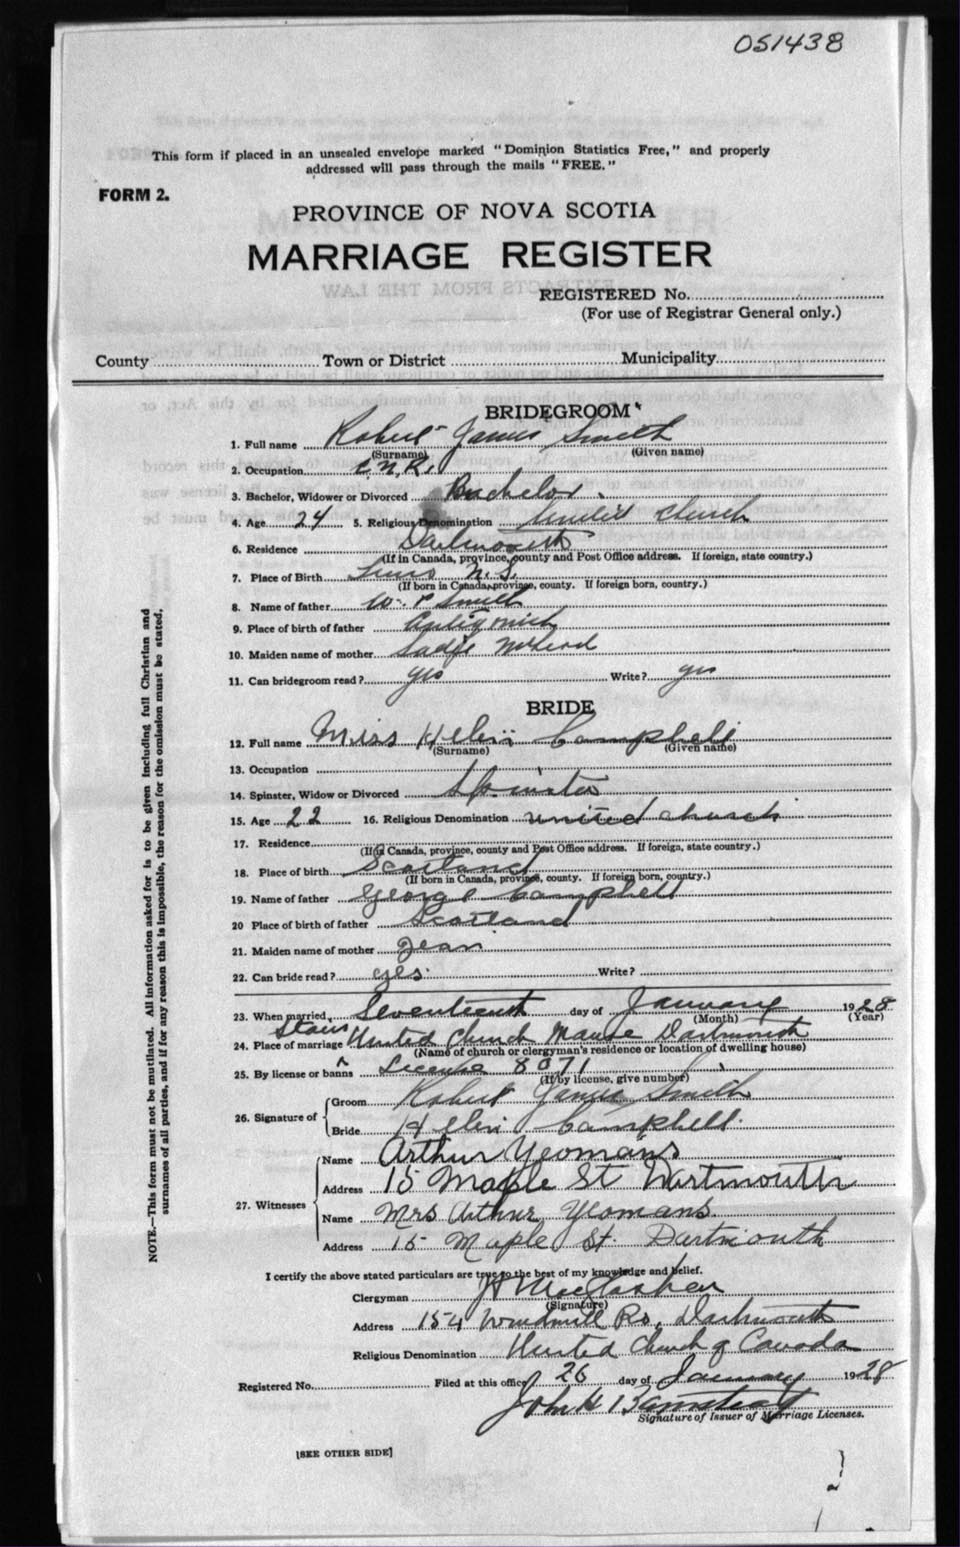 051438
This form if placed in an unsealed envelope marked "Dominion Statistics Free," and properly
addressed will pass through the mails "FREE."
FORM 2.
PROVINCE OF NOVA SCOTIA
MARRIAGE REGISTER
REGISTERED No.
(For use of Registrar General only.)
County Town or District Municipality
BRIDEGROOM
1. Full name Robert James Smith
(Surname) (Given name)
2. Occupation C.N.R.
3. Bachelor, Widower or Divorced Bachelor
4. Age 24 5. Religious Denomination United Church
6. Residence Dartmouth
(If in Canada, province, county and Post Office address. If foreign, state country.)
7. Place of Birth N.S.
(If born in Canada, province, county. If foreign born, country.)
8. Name of father W. P Smith
9. Place of birth of father
10. Maiden name of mother Sadje McLeod
11. Can bridegroom read? yes Write? yes
BRIDE
12. Full name Miss Helen Campbell
(Surname) (Given name)
13. Occupation
14. Spinster, Widow or Divorced Spinster
15. Age 22 16. Religious Denomination United church
17. Residence
(If in Canada, province, county and Post Office address. If foreign, state country.)
18. Place of birth Scotland
(If born in Canada, province, county. If foreign born, country.)
19. Name of father George Campbell
20 Place of birth of father Scotland
21. Maiden name of mother Jean
22. Can bride read? yes. Write?
23. When married, Seventeenth day of January 1928
(Month) (Year)
24. Place of marriage Stairs United Church Manse Dartmouth
(Name of church or clergyman's residence or location of dwelling house)
25. By license or banns License 8071
(If by license, give number)
26. Signature of Groom Robert James Smith
Bride Helen Campbell.
27. Witnesses Name Arthur Yeomans
Address 15 Maple St Dartmouth
Name Mrs Arthur Yeomans.
Address 15 Maple St. Dartmouth
I certify the above stated particulars are true to the best of my knowledge and belief.
Clergyman
(Signature)
Address 154 Windmill Rd, Dartmouth
Religious Denomination United Church of Canada
Registered No. Filed at this office 26 day of January 1928
John H
Signature of Issuer of Marriage Licenses.
[SEE OTHER SIDE]
NOTE.—This form must not be mutilated. All information asked for is to be given including full Christian and
surnames of all parties, and if for any reason this is impossible, the reason for the omission must be stated.